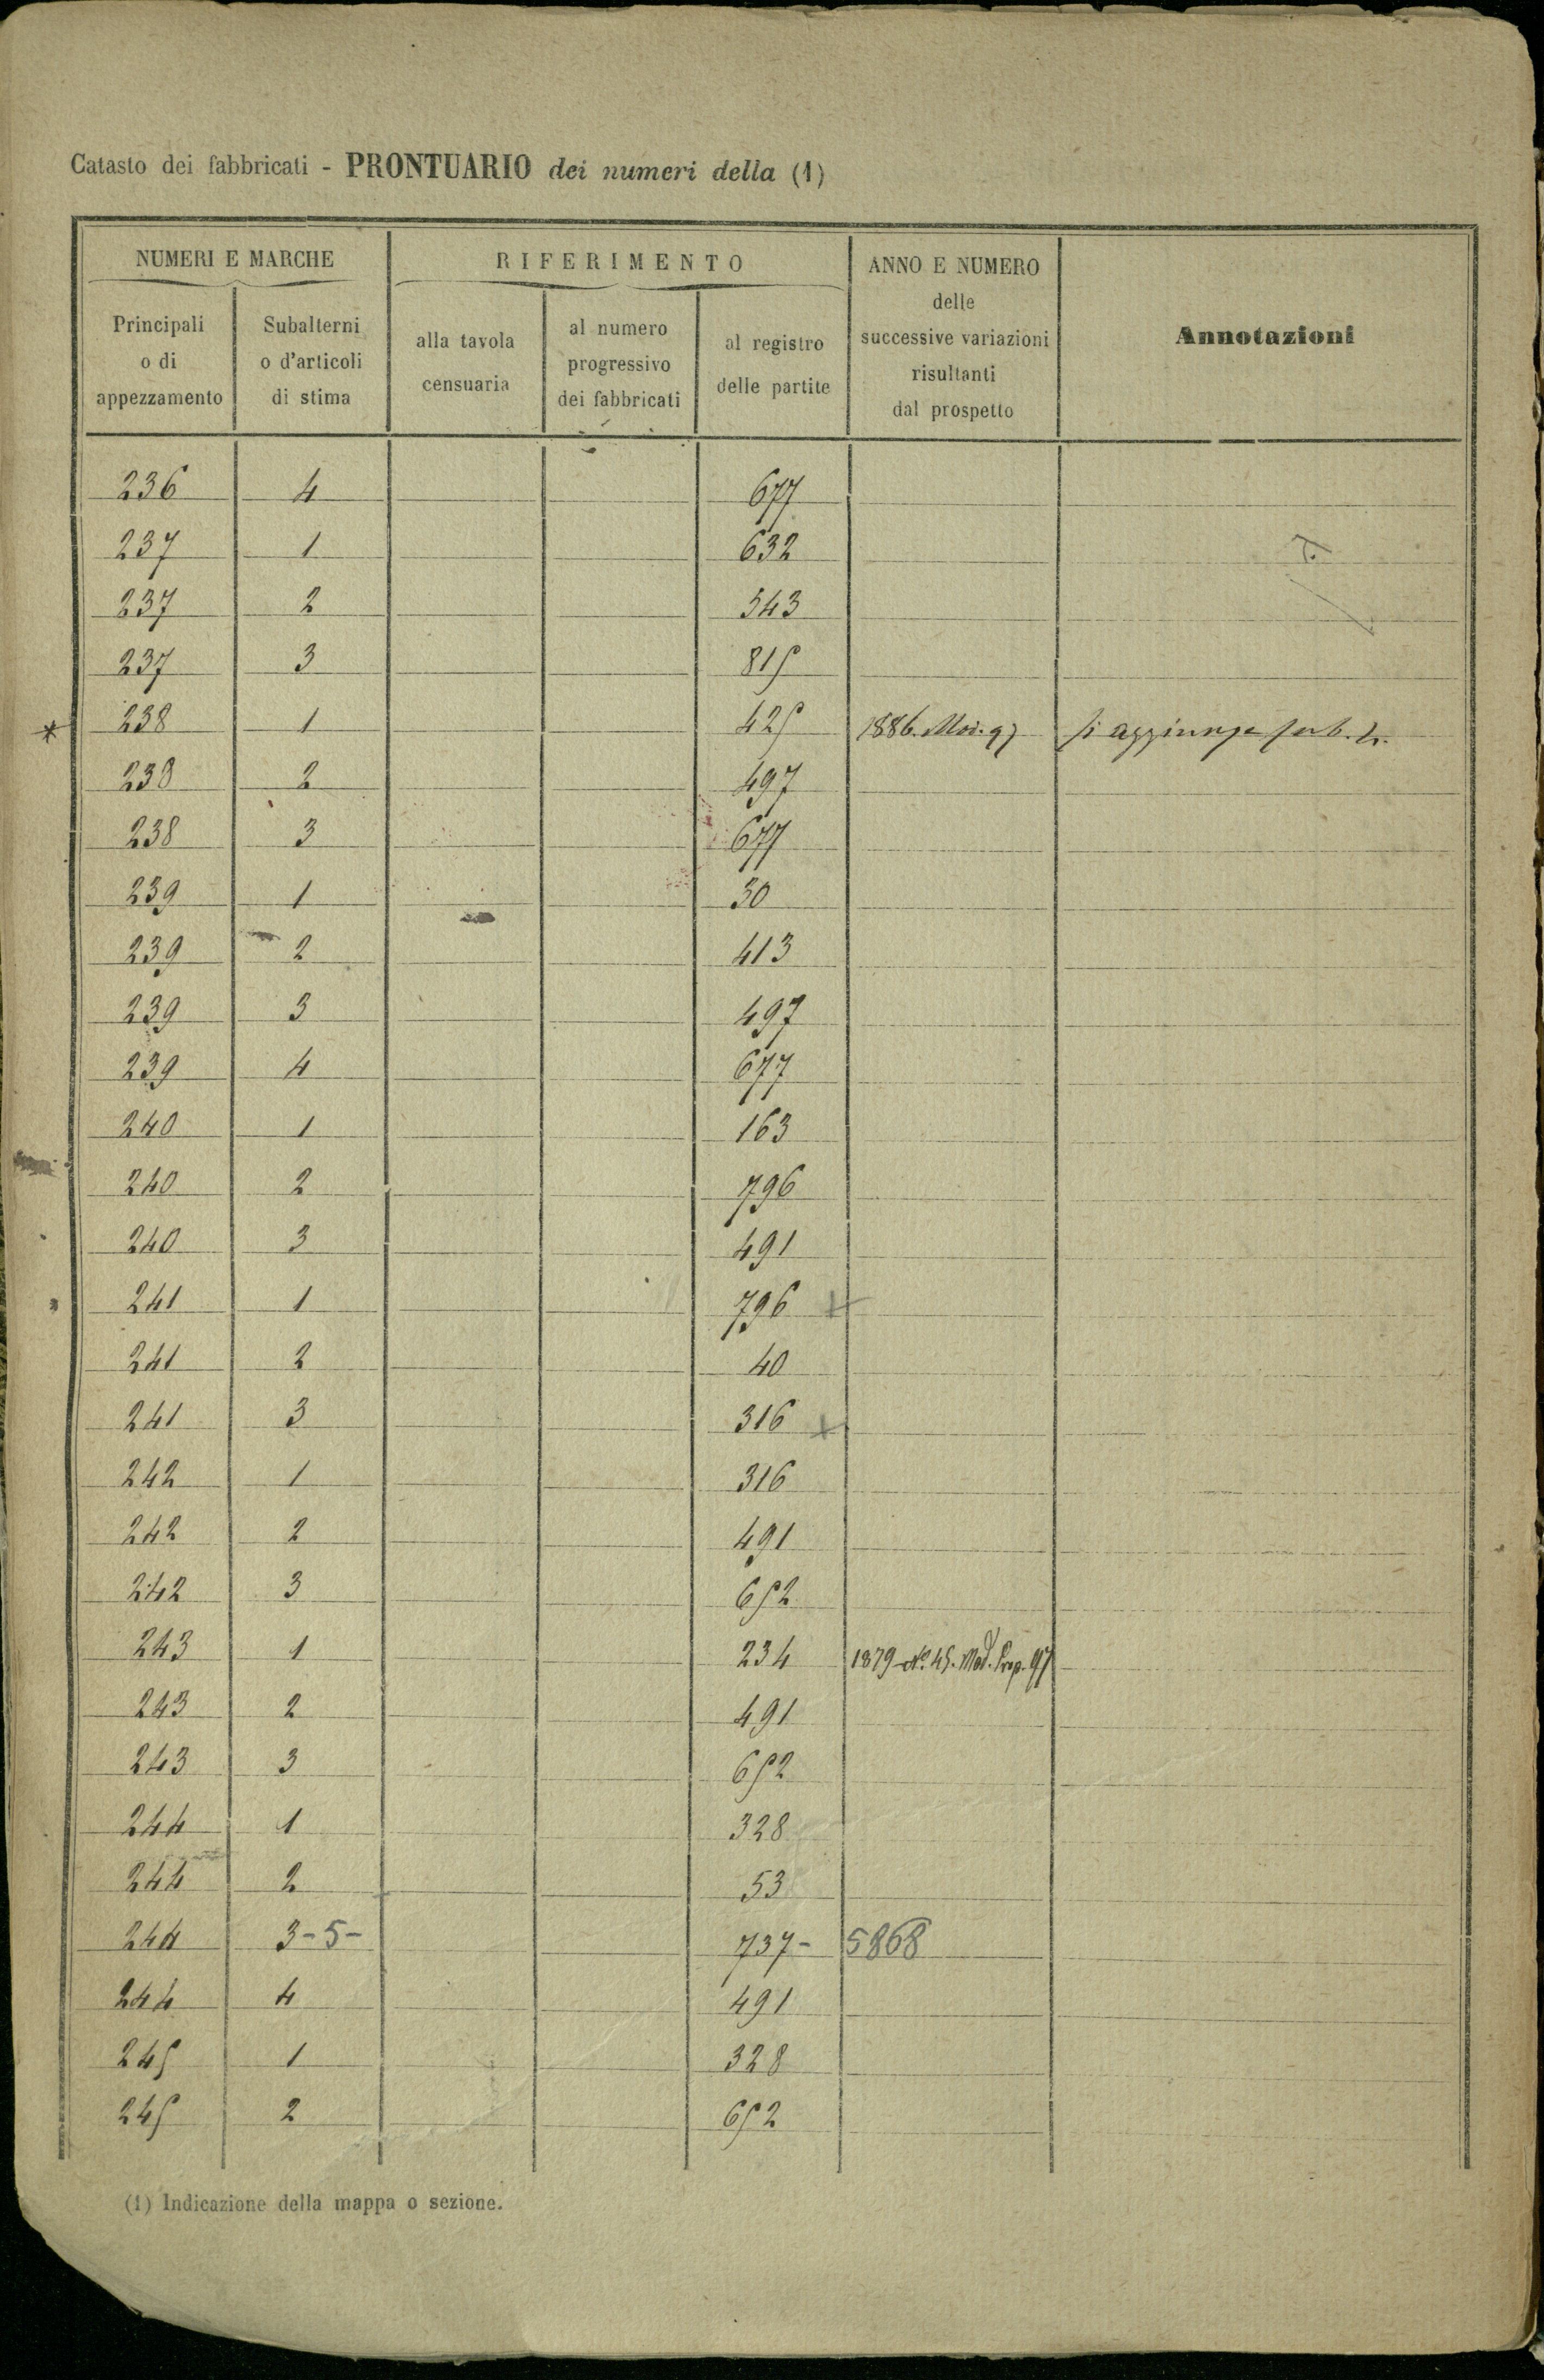 Catasto dei fabbricati - PRONTUARIO dei numeri della (1)
NUMERI E MARCHE
RIFERIMENTO
ANNO E NUMERO
delle
successive variazioni
risultanti
dal prospetto
Annotazioni
Principali
o di
appezzamento
Subalterni
o d'articoli
di stima
alla tavola
censuaria
al numero
progressivo
dei fabbricati
al registro
delle partite
236 4 677
237 1 632
237 2 543
237 3 815
* 238 1 425 1886. Mod. 97 si aggiunge sub. 4.
238 2 497
238 3 677
239 1 30
239 2 413
239 3 497
239 4 677
240 1 163
240 2 796
240 3 491
241 1 796 +
241 2 40
241 3 316 +
242 1 316
242 2 491
242 3 652
243 1 234 1879 No. 45. Mod. Prep. 97
243 2 491
243 3 652
244 1 328
244 2 53
244 3-5- 737- 5868
244 4 491
245 1 328
245 2 652
(1) Indicazione della mappa o sezione.